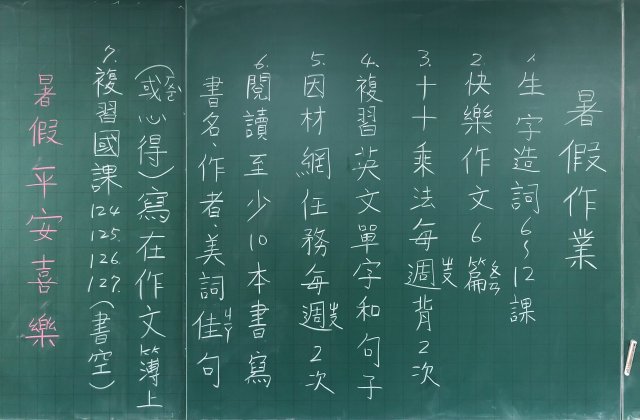 暑假作業
1.生字造詞6~12課
2.快樂作文6篇ㄆㄧㄢ
3.十十乘法每週ㄓㄡ背2次
4.複習英文單字和句子
5.因材網任務每週ㄓㄡ2次
6.閱讀至少10本書寫
書名、作者、美詞佳ㄐㄧㄚ句
(或ㄏㄨㄛˋ心得)寫在作文簿上
7.複習國課124.125.126.127.(書空)
暑假平安喜樂